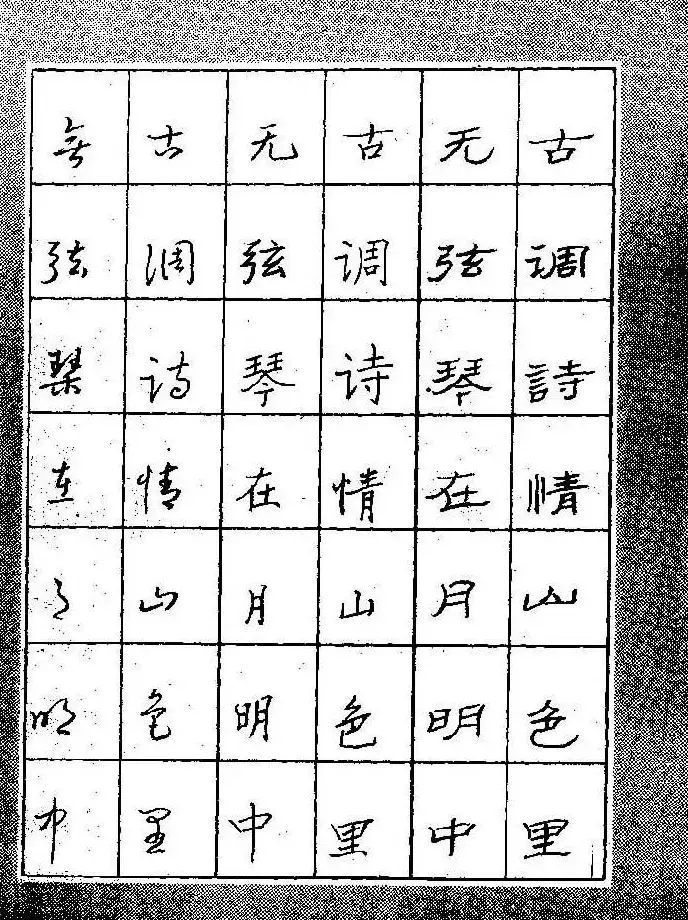 古调詩情山色里
无弦琴在月明中
古调诗情山色里
无弦琴在月明中
古调诗情山色里
無弦琴在月明中